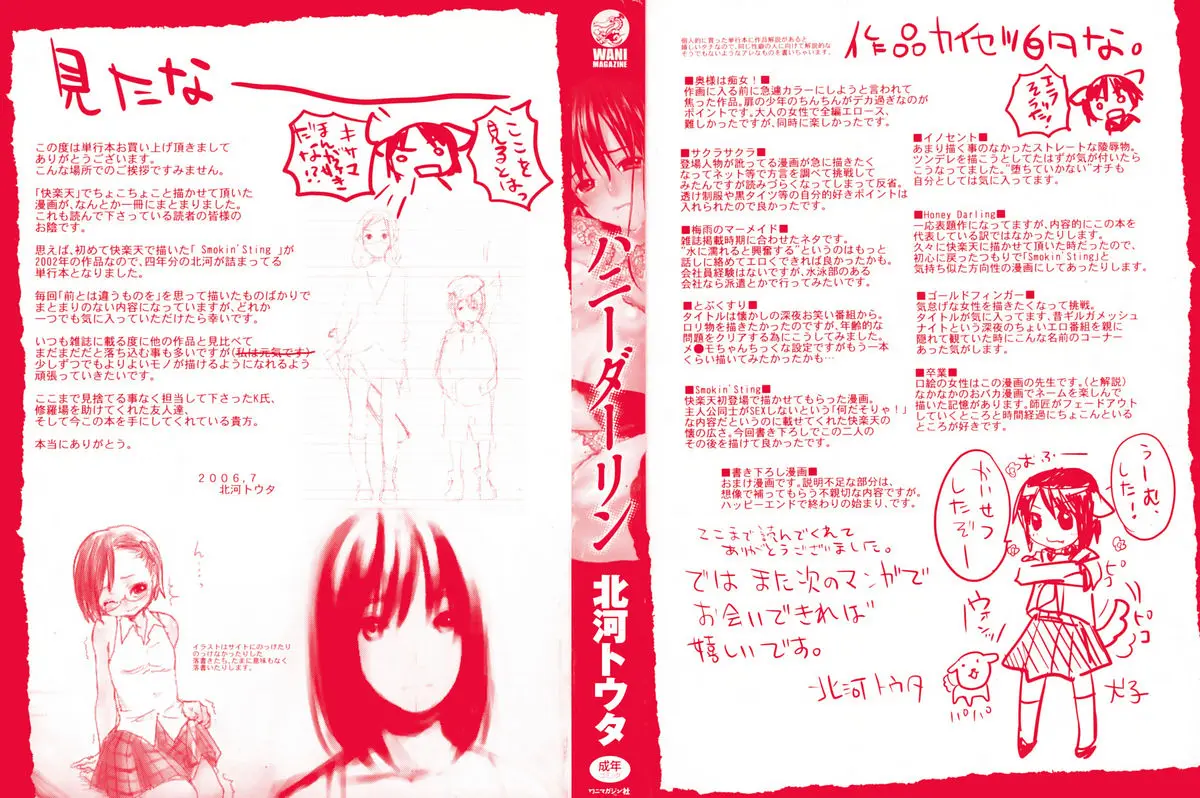 見たな
ここを見るとはっ
キサマほんがき好きだな!?
この度は単行本お買い上げ頂きまして
ありがとうございます。
こんな場所でのご挨拶ですみません。
「快楽天」でちょこちょこと描かせて頂いた
漫画が、なんとか一冊にまとまりました。
これも読んで下さっている読者の皆様の
お陰です。
思えば、初めて快楽天で描いた「Smokin'Sting」が
2002年の作品なので、四年分の北河が詰まってる
単行本となりました。
毎回「前とは違うものを」を思って描いたものばかりで
まとまりのない内容になっていますが、どれか
一つでも気に入っていただけたら幸いです。
いつも雑誌に載る度に他の作品と見比べて
まだまだだと落ち込む事も多いですが(私は元気です)
少しずつでもよりよいモノが描けるようになれるよう
頑張っていきたいです。
ここまで見捨てる事なく担当して下さったK氏、
修羅場を助けてくれた友人達、
そして今この本を手にしてくれている貴方。
本当にありがとう。
2006,7
北河トウタ
ん…
イラストはサイトにのっけたり
のっけなかったりした
落書きたち。たまに意味もなく
落書いたりします。
WANI
MAGAZINE
ハニーダーリン
北河トウタ
成年
コミック
ワニマガジン社
作品カイセツ的な。
個人的に買った単行本に作品解説があると
嬉しいタチなので、同じ性癖の人に向けて解説的な
そうでもないようなアレなものを書いちゃいます。
エラそうだ!
■サクラサクラ■
登場人物が訛ってる漫画が急に描きたく
なってネット等で方言を調べて挑戦して
みたんですが読みづらくなってしまって反省。
透け制服や黒タイツ等の自分的好きポイントは
入れられたので良かったです。
■梅雨のマーメイド■
雑誌掲載時期に合わせたネタです。
"水に濡れると興奮する"というのはもっと
話しに絡めてエロくできれば良かったかも。
会社員経験はないですが、水泳部のある
会社なら派遣とかで行ってみたいです。
■Smokin'Sting■
快楽天初登場で描かせてもらった漫画。
主人公同士がSEXしないという「何だそりゃ！」
な内容だというのに載せてくれた快楽天の
懐の広さ。今回書き下ろしでこの二人の
その後を描けて良かったです。
■書き下ろし漫画■
おまけ漫画です。説明不足な部分は、
想像で補ってもらう不親切な内容ですが。
ハッピーエンドで終わりの始まり、です。
■イノセント■
あまり描く事のなかったストレートな陵辱物。
ツンデレを描こうとしてたはずが気が付いたら
こうなってました。"堕ちていかない"オチも
自分としては気に入ってます。
■Honey Darling■
一応表題作になってますが、内容的にこの本を
代表している訳ではなかったりします。
久々に快楽天に描かせて頂いた時だったので、
初心に戻ったつもりで「Smokin'Sting」と
気持ち似た方向性の漫画にしてあったりします。
■ゴールドフィンガー■
気怠げな女性を描きたくなって挑戦。
タイトルが気に入ってます、昔ギルガメッシュ
ナイトという深夜のちょいエロ番組を親に
隠れて観ていた時にこんな名前のコーナー
あった気がします。
■卒業■
口絵の女性はこの漫画の先生です。(と解説)
なかなかのおバカ漫画でネームを楽しんで
描いた記憶があります。師匠がフェードアウト
していくところと時間経過にちょこんといる
ところが好きです。
ここまで読んでくれて
ありがとうございました。
では また次のマンガで
お会いできれば
嬉しいです。
北河トウタ
うーむ、
した!
かいせつ
したぞー
おふー
ピコピコ
ウォンッ
パパ
犬子